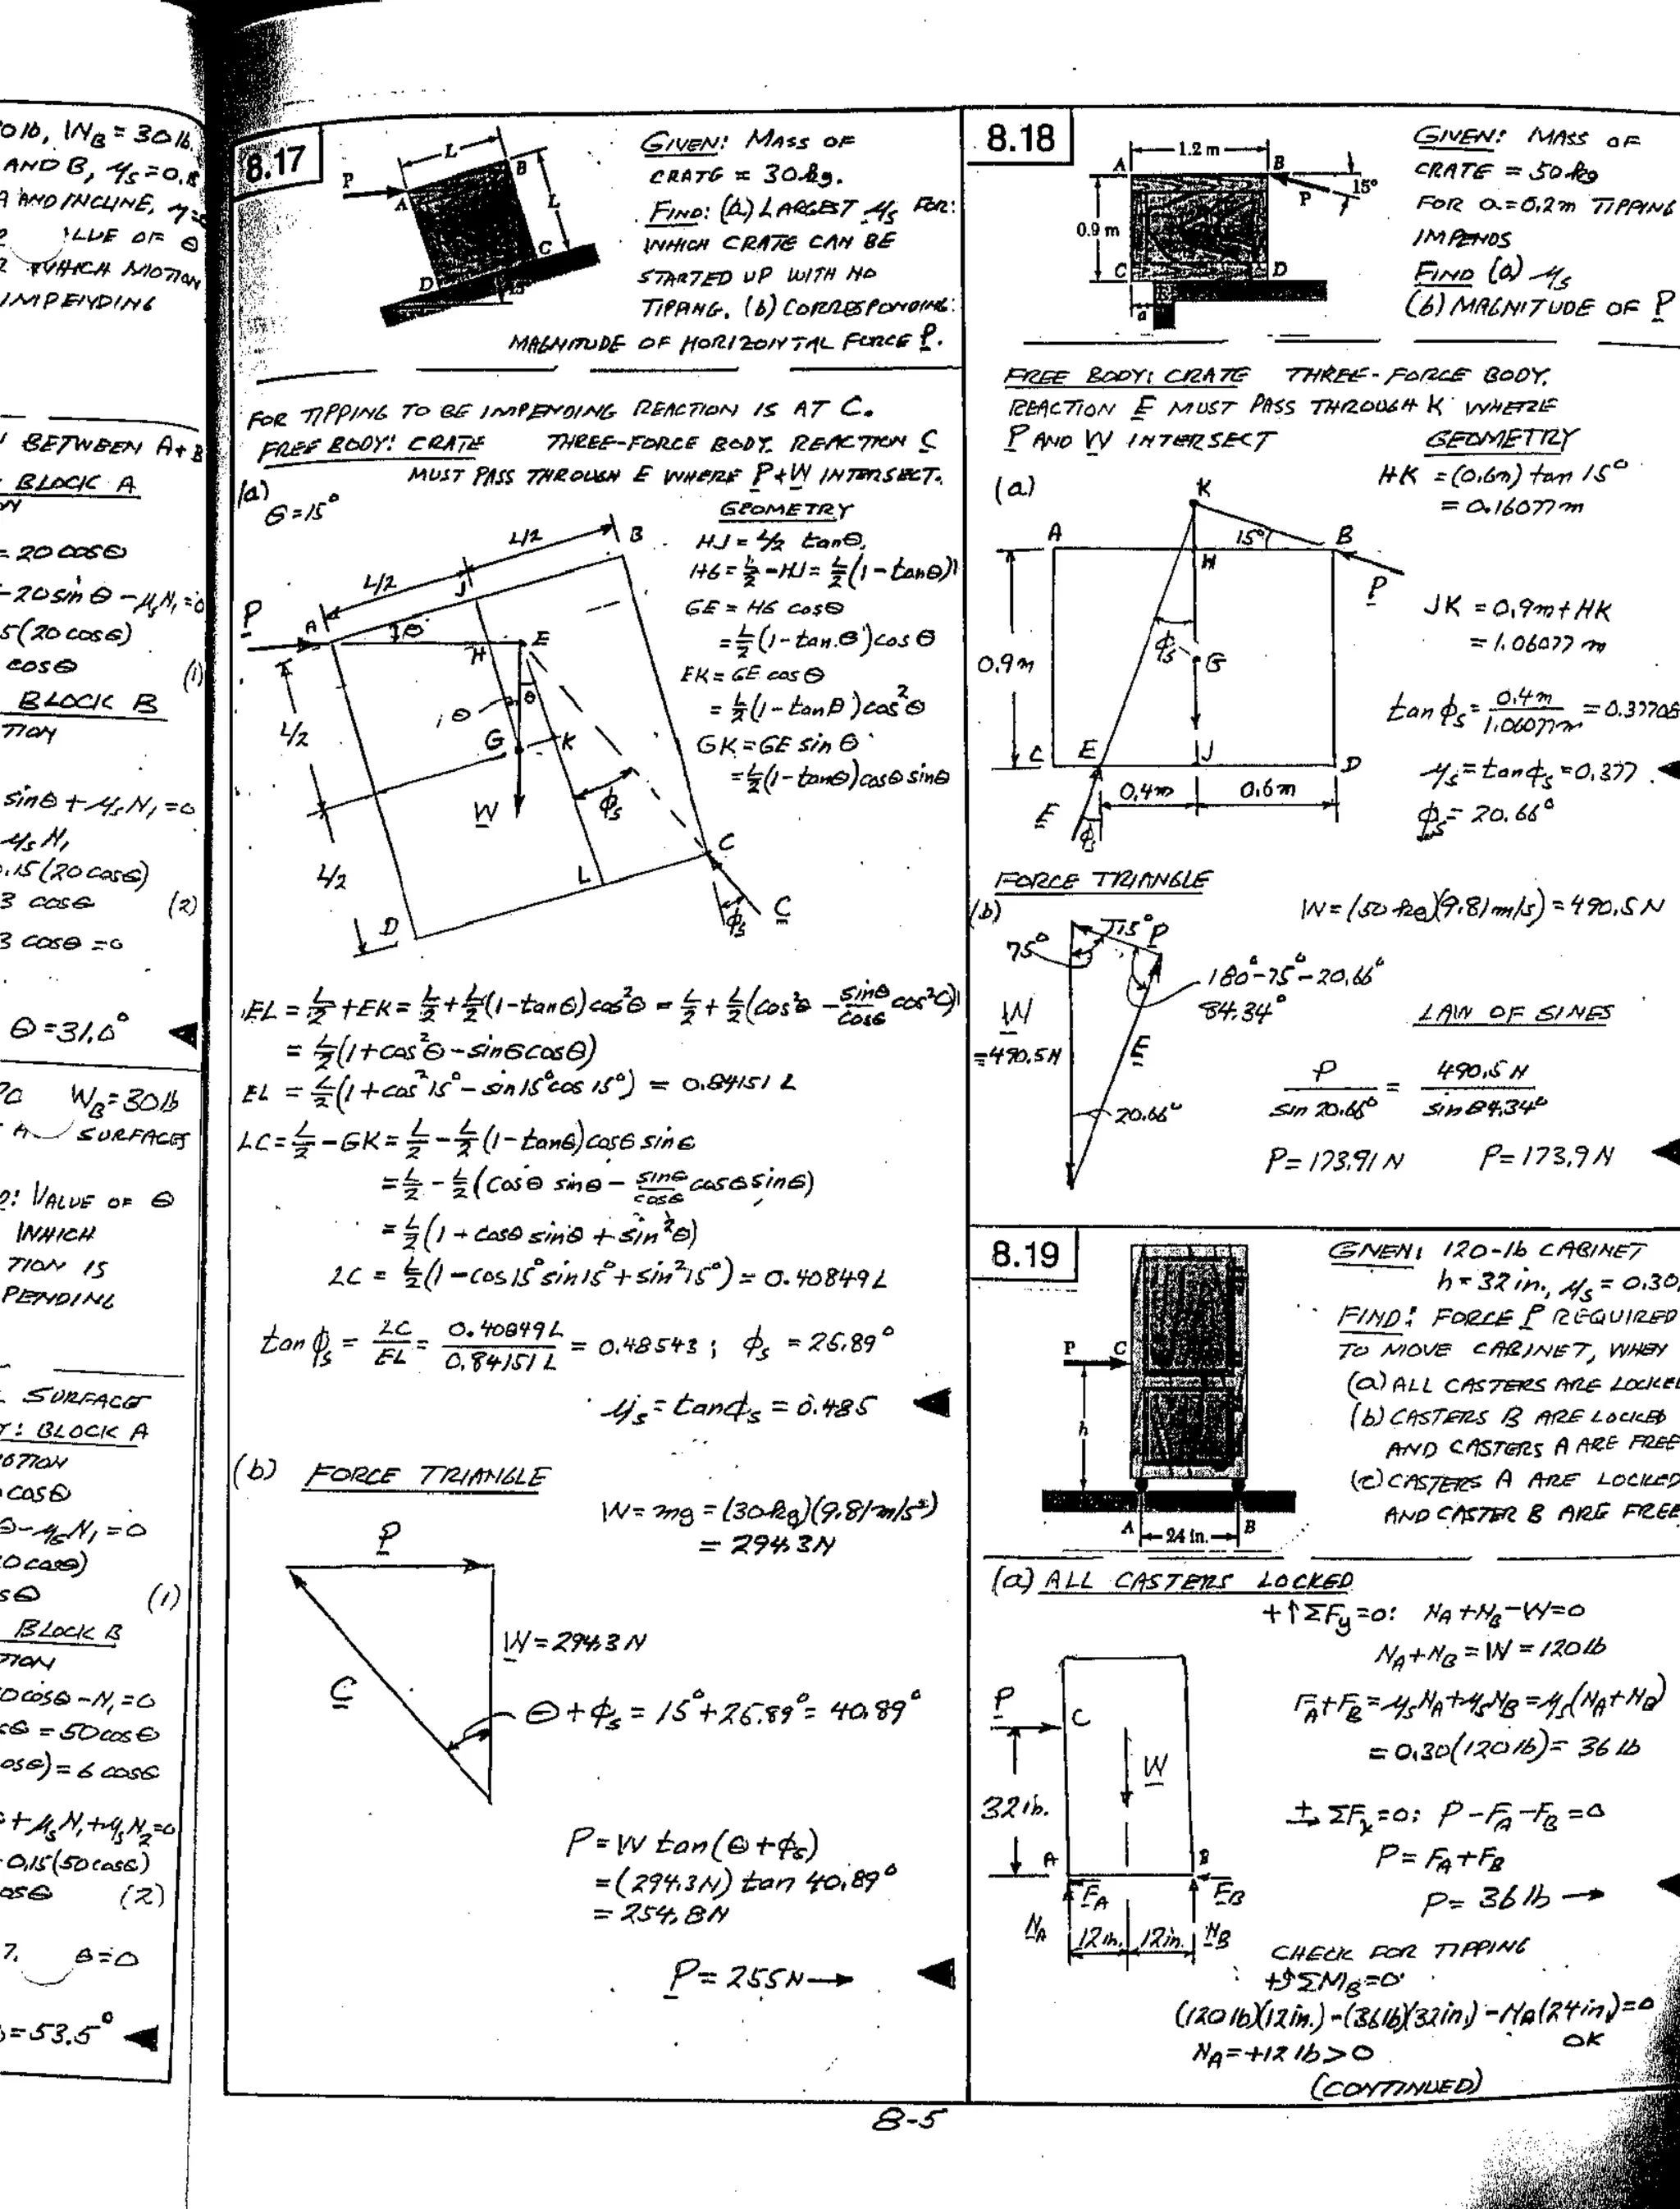 0 lb, WB = 30 lb.
AND B, μs = 0.15
A AND INCLINE,
ALUE OF θ
WHICH MOTION
IMPENDING
BETWEEN A+B
BLOCK A
= 20 cosθ
-20 sin θ - μsN1 = 0
5(20 cosθ)
cosθ (1)
BLOCK B
TION
sinθ + μsN1 = 0
μsN1
.15(20 cosθ)
3 cosθ (2)
3 cosθ = 0
θ = 31.0° ◄
WB = 30 lb
SURFACES
: VALUE OF θ
WHICH
TION IS
PENDING
SURFACE
: BLOCK A
OTION
cosθ
θ - μsN1 = 0
0 cosθ)
sθ (1)
BLOCK B
TION
0 cosθ - N1 = 0
cθ = 50 cosθ
osθ) = 6 cosθ
+ μsN1 + μsN2 = 0
0.15(50 cosθ)
osθ (2)
7. θ = 0
= 53.5° ◄
8.17
L
B
P
A
L
C
D
15°
GIVEN: MASS OF
CRATE = 30 kg.
FIND: (a) LARGEST μs FOR:
WHICH CRATE CAN BE
STARTED UP WITH NO
TIPPING. (b) CORRESPONDING:
MAGNITUDE OF HORIZONTAL FORCE P.
FOR TIPPING TO BE IMPENDING REACTION IS AT C.
FREE BODY: CRATE THREE-FORCE BODY. REACTION C
MUST PASS THROUGH E WHERE P+W INTERSECT.
(a)
θ = 15°
GEOMETRY
HJ = L/2 tanθ,
HG = L/2 - HJ = L/2(1-tanθ)
GE = HG cosθ
= L/2(1-tan.θ)cosθ
EK = GE cosθ
= L/2(1-tanθ)cos²θ
GK = GE sin θ
= L/2(1-tanθ)cosθ sinθ
L/2
B
L/2
J
P
A
θ
H
E
θ
θ
L/2
G
K
W
φs
L/2
L
C
D
φs
C
EL = L/2 + EK = L/2 + L/2(1-tanθ)cos²θ = L/2 + L/2(cos²θ - sinθ/cosθ cos²θ)
= L/2(1+cos²θ-sinθcosθ)
EL = L/2(1+cos²15°-sin15°cos15°) = 0.84151 L
LC = L/2 - GK = L/2 - L/2(1-tanθ)cosθ sinθ
= L/2 - L/2(cosθ sinθ - sinθ/cosθ cosθ sinθ)
= L/2(1 - cosθ sinθ + sin²θ)
LC = L/2(1-cos15°sin15°+sin²15°) = 0.40849L
tan φs = LC/EL = 0.40849L/0.84151L = 0.48543; φs = 25.89°
μs = tanφs = 0.485 ◄
(b) FORCE TRIANGLE
W = mg = (30 kg)(9.81 m/s²)
= 294.3 N
P
W = 294.3 N
C
θ + φs = 15° + 25.89° = 40.89°
P = W tan(θ+φs)
= (294.3N) tan 40.89°
= 254.8N
P = 255N → ◄
8.18
A
1.2 m
B
15°
P
0.9 m
C
D
a
GIVEN: MASS OF
CRATE = 50 kg
FOR a = 0.2m TIPPING
IMPENDS
FIND (a) μs
(b) MAGNITUDE OF P
FREE BODY: CRATE THREE-FORCE BODY.
REACTION E MUST PASS THROUGH K WHERE
P AND W INTERSECT
GEOMETRY
(a)
HK = (0.6m) tan 15°
= 0.16077m
K
A
15°
B
H
P
JK = 0.9m + HK
= 1.06077 m
φs
0.9m
G
tan φs = 0.4m/1.06077m = 0.37708
C
E
J
D
μs = tanφs = 0.377 ◄
0.4m
0.6m
E
φs
φs = 20.66°
FORCE TRIANGLE
(b)
W = (50 kg)(9.81 m/s) = 490.5 N
15°
P
75°
180°-75°-20.66°
84.34°
W
= 490.5N
E
LAW OF SINES
P/sin 20.66° = 490.5 N/sin 84.34°
20.66°
P = 173.91 N P = 173.9 N ◄
8.19
P
C
h
A
24 in.
B
GIVEN: 120-lb CABINET
h = 32 in., μs = 0.30
FIND: FORCE P REQUIRED
TO MOVE CABINET, WHEN
(a) ALL CASTERS ARE LOCKED
(b) CASTERS B ARE LOCKED
AND CASTERS A ARE FREE
(c) CASTERS A ARE LOCKED
AND CASTER B ARE FREE
(a) ALL CASTERS LOCKED
+↑ΣFy=0: NA+NB-W=0
NA+NB = W = 120 lb
P
C
FA+FB = μsNA+μsNB = μs(NA+NB)
= 0.30(120 lb) = 36 lb
W
32 in.
+→ ΣFx=0: P-FA-FB=0
A
B
P = FA+FB
FA
FB
P = 36 lb → ◄
NA
12 in.
12 in.
NB
CHECK FOR TIPPING
+↻ΣMB=0
(120 lb)(12 in.)-(36 lb)(32 in.)-NA(24 in.)=0
NA = +12 lb > 0 OK
(CONTINUED)
8-5